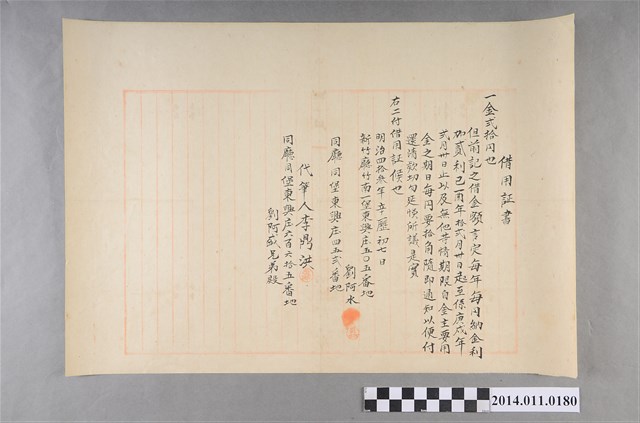 借用証書
一金弍拾円也
但前記之借金額言定每年每円納金利
加貳利己酉年拾弍月卅日起至條庚戌年
弍月卅日止以及無他等情期限自金主要用
金之期日每円要拾角隨即通知以便付
還清款切勿延悞所議是實
右二付借用証候也
明治四拾叁年辛曆初七日
新竹廳竹南一堡東興庄五〇五番地
劉阿水
同廳同堡東興庄四五弍番地
代筆人李鼎洪
同廳同堡東興庄六百六拾五番地
劉阿威兄弟殿
2014.011.0180